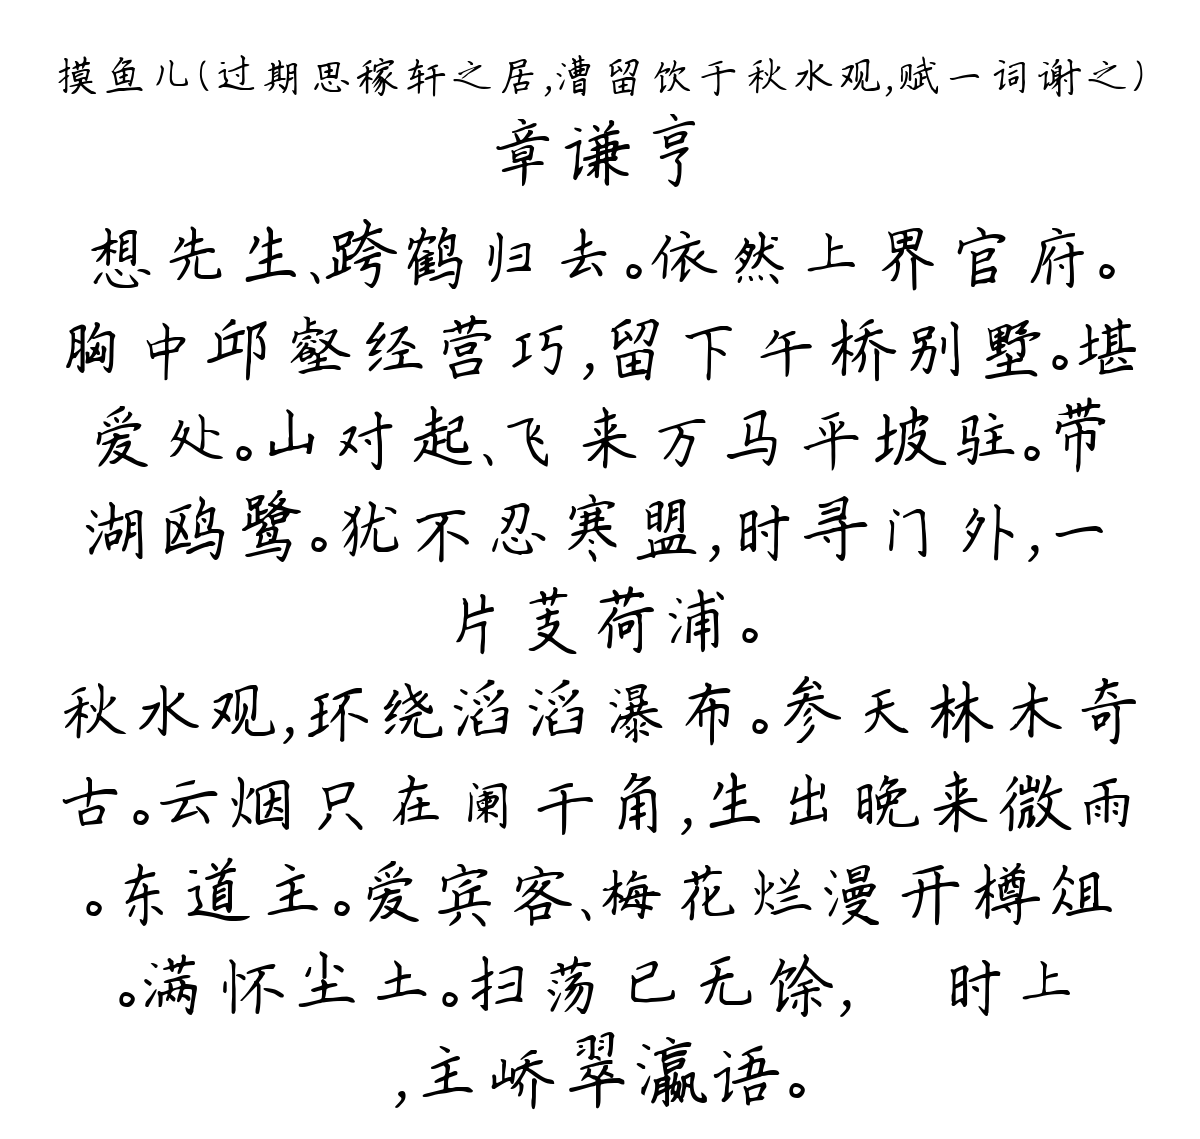 摸鱼儿(过期思稼轩之居,漕留饮于秋水观,赋一词谢之)
章谦亨
想先生、跨鹤归去。依然上界官府。
胸中邱壑经营巧,留下午桥别墅。堪
爱处。山对起、飞来万马平坡驻。带
湖鸥鹭。犹不忍寒盟,时寻门外,一
片芰荷浦。
秋水观,环绕滔滔瀑布。参天林木奇
古。云烟只在阑干角,生出晚来微雨
。东道主。爱宾客、梅花烂漫开樽俎
。满怀尘土。扫荡已无馀, 时上
,主峤翠瀛语。